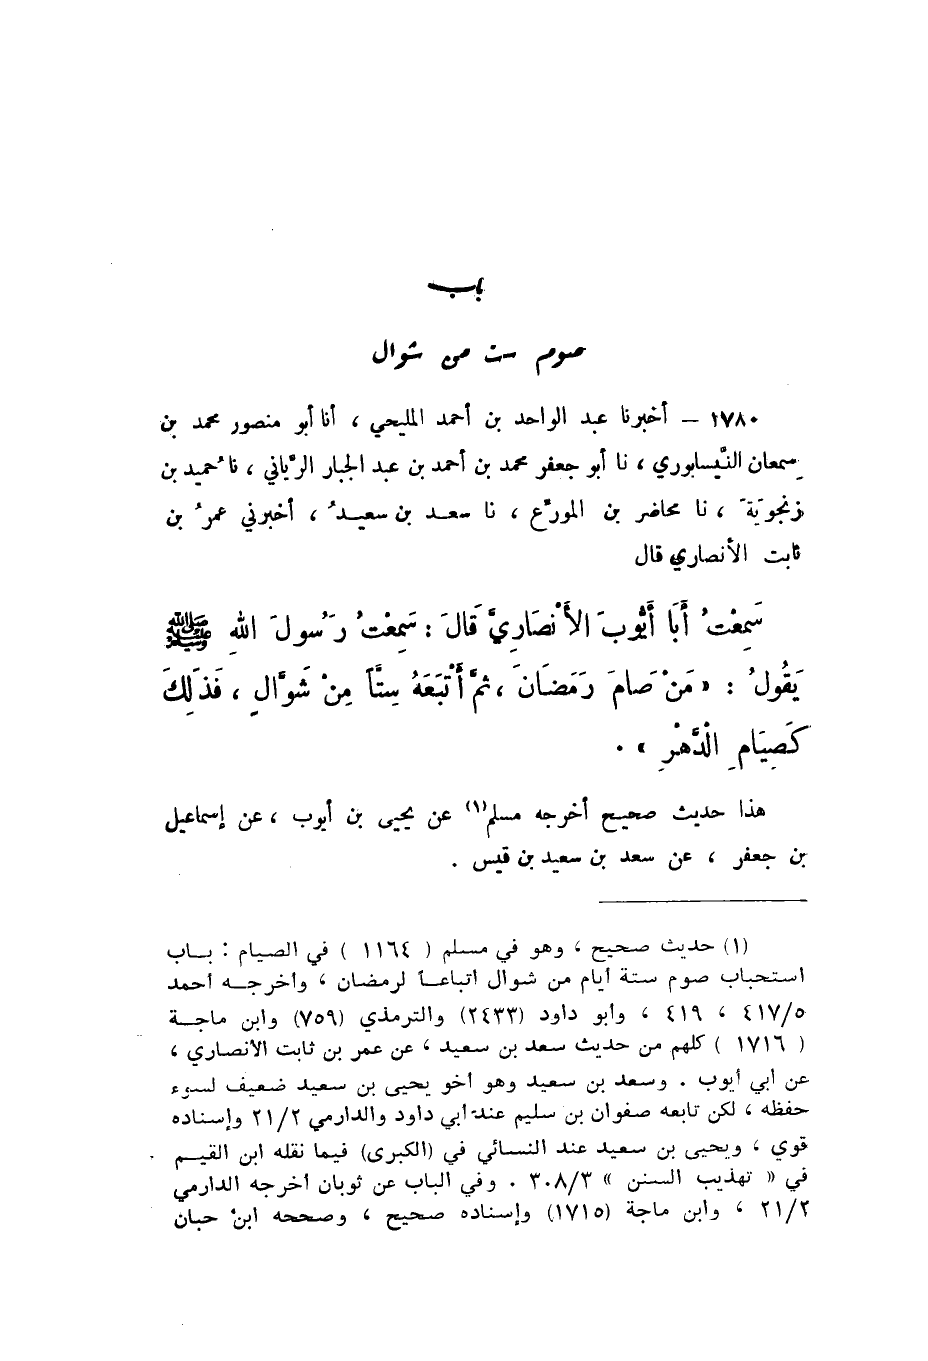 باب
صوم ست من شوال
١٧٨٠ – أخبرنا عبد الواحد بن أحمد المليحي ، أنا أبو منصور محمد بن
سمعان النَّيسابوري ، نا أبو جعفر محمد بن أحمد بن عبد الجبار الرَّياني ، نا حُميد بن
زنجويَةَ ، نا محاضر بن المورِّع ، نا سعد بن سعيدُ ، أخبرني عمرُ بن
ثابت الأنصاري قال
سَمِعْتُ أَبَا أَيُّوبَ الأَنْصَارِيَّ قَالَ : سَمِعْتُ رَسُولَ اللهِ ﷺ
يَقُولُ : « مَنْ صَامَ رَمَضَانَ ، ثُمَّ أَتْبَعَهُ سِتَّاً مِنْ شَوَّالٍ ، فَذَلِكَ
كَصِيَامِ الْدَّهْرِ » .
هذا حديث صحيح أخرجه مسلم(١) عن يحيى بن أيوب ، عن إسماعيل
بن جعفر ، عن سعد بن سعيد بن قيس .
(١) حديث صحيح ، وهو في مسلم ( ١١٦٤ ) في الصيام : بـاب
استحباب صوم ستة أيام من شوال اتباعـاً لرمضان ، وأخرجـه أحمد
٤١٧/٥ ، ٤١٩ ، وأبو داود (٢٤٣٣) والترمذي (٧٥٩) وابن ماجـة
( ١٧١٦ ) كلهم من حديث سعد بن سعيد ، عن عمر بن ثابت الأنصاري ،
عن أبي أيوب . وسعد بن سعيد وهو أخو يحيى بن سعيد ضعيف لسوء
حفظه ، لكن تابعه صفوان بن سليم عند أبي داود والدارمي ٢١/٢ وإسناده
قوي ، ويحيى بن سعيد عند النسائي في (الكبرى) فيما نقله ابن القيـم
في « تهذيب السنن » ٣٠٨/٣ . وفي الباب عن ثوبان أخرجه الدارمي
٢١/٢ ، وابن ماجة (١٧١٥) وإسناده صحيح ، وصححه ابن حبان